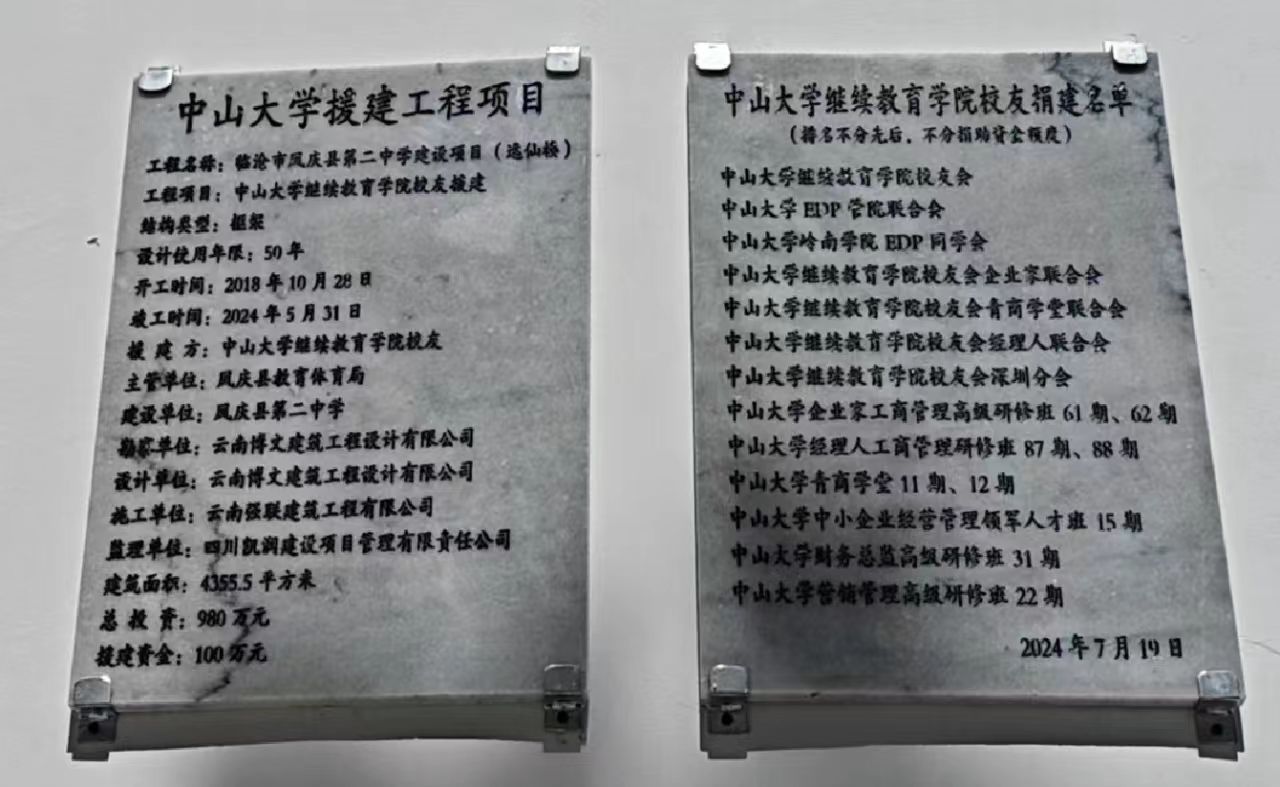 中山大学援建工程项目
工程名称：临沧市凤庆县第二中学建设项目（逸仙楼）
工程项目：中山大学继续教育学院校友援建
结构类型：框架
设计使用年限：50 年
开工时间：2018 年 10 月 28 日
竣工时间：2024 年 5 月 31 日
援 建 方：中山大学继续教育学院校友
主管单位：凤庆县教育体育局
建设单位：凤庆县第二中学
勘察单位：云南博文建筑工程设计有限公司
设计单位：云南博文建筑工程设计有限公司
施工单位：云南强联建筑工程有限公司
监理单位：四川凯润建设项目管理有限责任公司
建筑面积：4355.5 平方米
总 投 资：980 万元
援建资金：100 万元
中山大学继续教育学院校友捐建名单
（排名不分先后，不分捐助资金额度）
中山大学继续教育学院校友会
中山大学 EDP 管院联合会
中山大学岭南学院 EDP 同学会
中山大学继续教育学院校友会企业家联合会
中山大学继续教育学院校友会青商学堂联合会
中山大学继续教育学院校友会经理人联合会
中山大学继续教育学院校友会深圳分会
中山大学企业家工商管理高级研修班 61 期、62 期
中山大学经理人工商管理研修班 87 期、88 期
中山大学青商学堂 11 期、12 期
中山大学中小企业经营管理领军人才班 15 期
中山大学财务总监高级研修班 31 期
中山大学营销管理高级研修班 22 期
2024 年 7 月 19 日